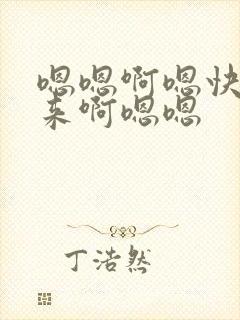 嗯嗯啊嗯快
来啊嗯嗯
丁浩然